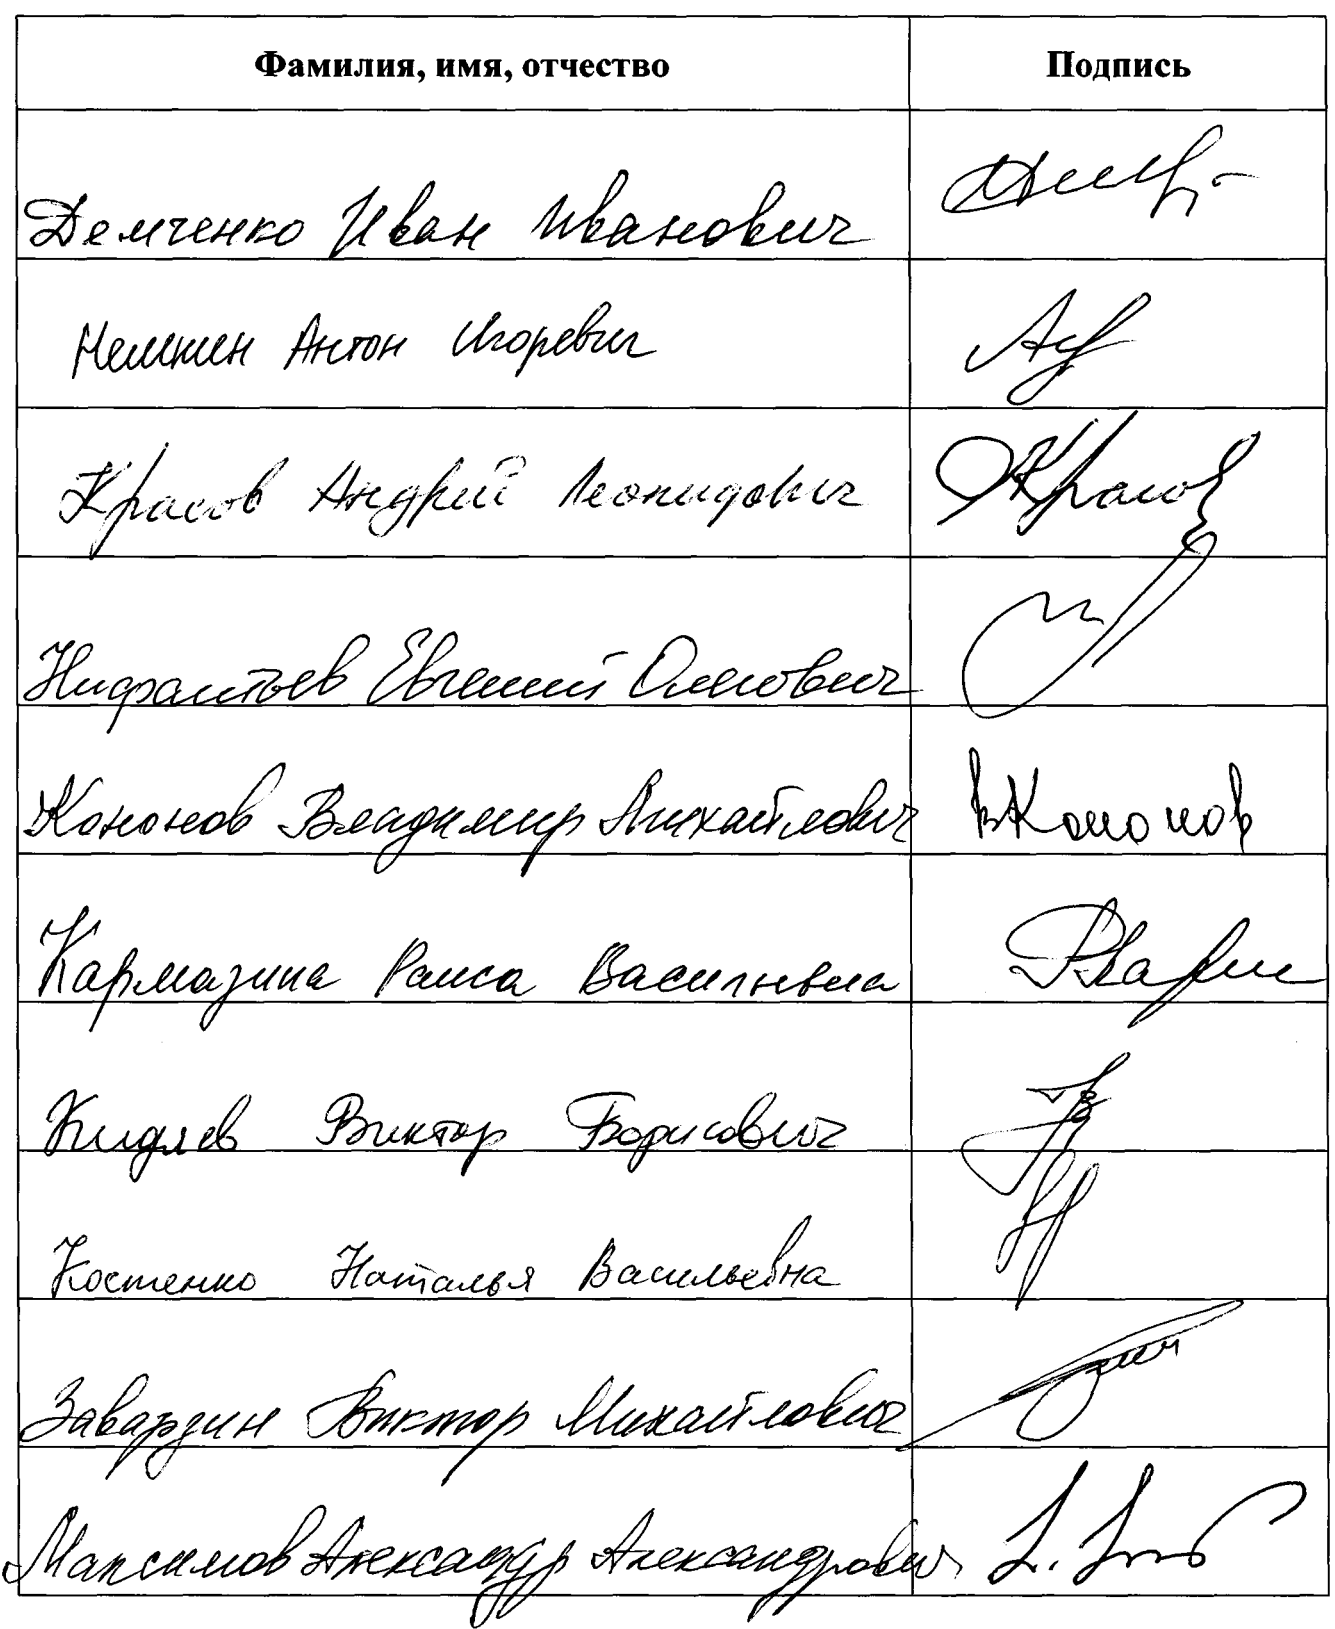 Фамилия, имя, отчество Подпись
Демченко Иван Иванович
Немкин Антон Игоревич
Красов Андрей Леонидович Красов
Нифантьев Евгений Олегович
Кононов Владимир Михайлович ВКононов
Кармазина Раиса Васильевна
Кидяев Виктор Борисович
Костенко Наталья Васильевна
Заварзин Виктор Михайлович
Максимов Александр Александрович